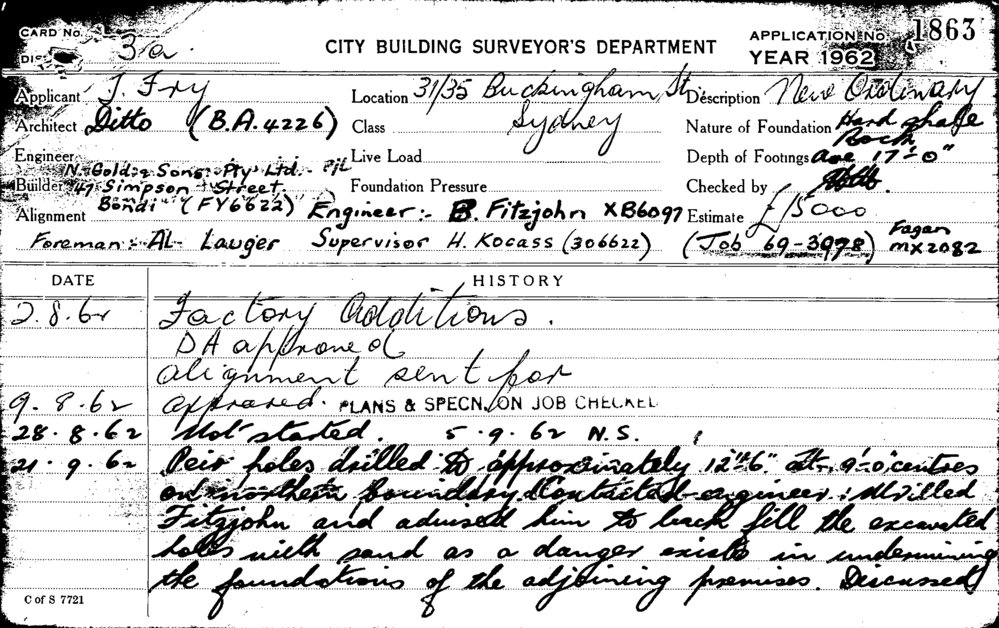 CARD No. 1
DIS
3a
CITY BUILDING SURVEYOR'S DEPARTMENT
APPLICATION No. 1863
YEAR 1962
Applicant J. Fry
Location 31/35 Buckingham St
Sydney
Description New Ordinary
Architect Ditto (B.A. 4226)
Class
Nature of Foundation Hard shale
Rock
Engineer
Live Load
Depth of Footings Ave 17'-0"
N. Gold & Sons Pty Ltd. P/L
Builder 47 Simpson Street.
Foundation Pressure
Checked by
Alignment Bondi (FY6622) Engineer:- B. Fitzjohn XB6097
Estimate £15000
Foreman:- AL Lauger Supervisor H. Kocass (306622) (Job 69-3978) Fagan
MX2082
DATE HISTORY
2.8.62 Factory Additions.
DA approved
alignment sent for
9.8.62 approved. PLANS & SPECN. ON JOB CHECKED
28.8.62 Not started. 5.9.62 N.S.
21.9.62 Peir holes drilled to approximately 12'-6" at 9'-0" centres
on northern boundary. Contacted engineer
Fitzjohn and advised him to back fill the excavated
holes with sand as a danger exists in undermining
the foundations of the adjoining premises. Discussed
C of S 7721